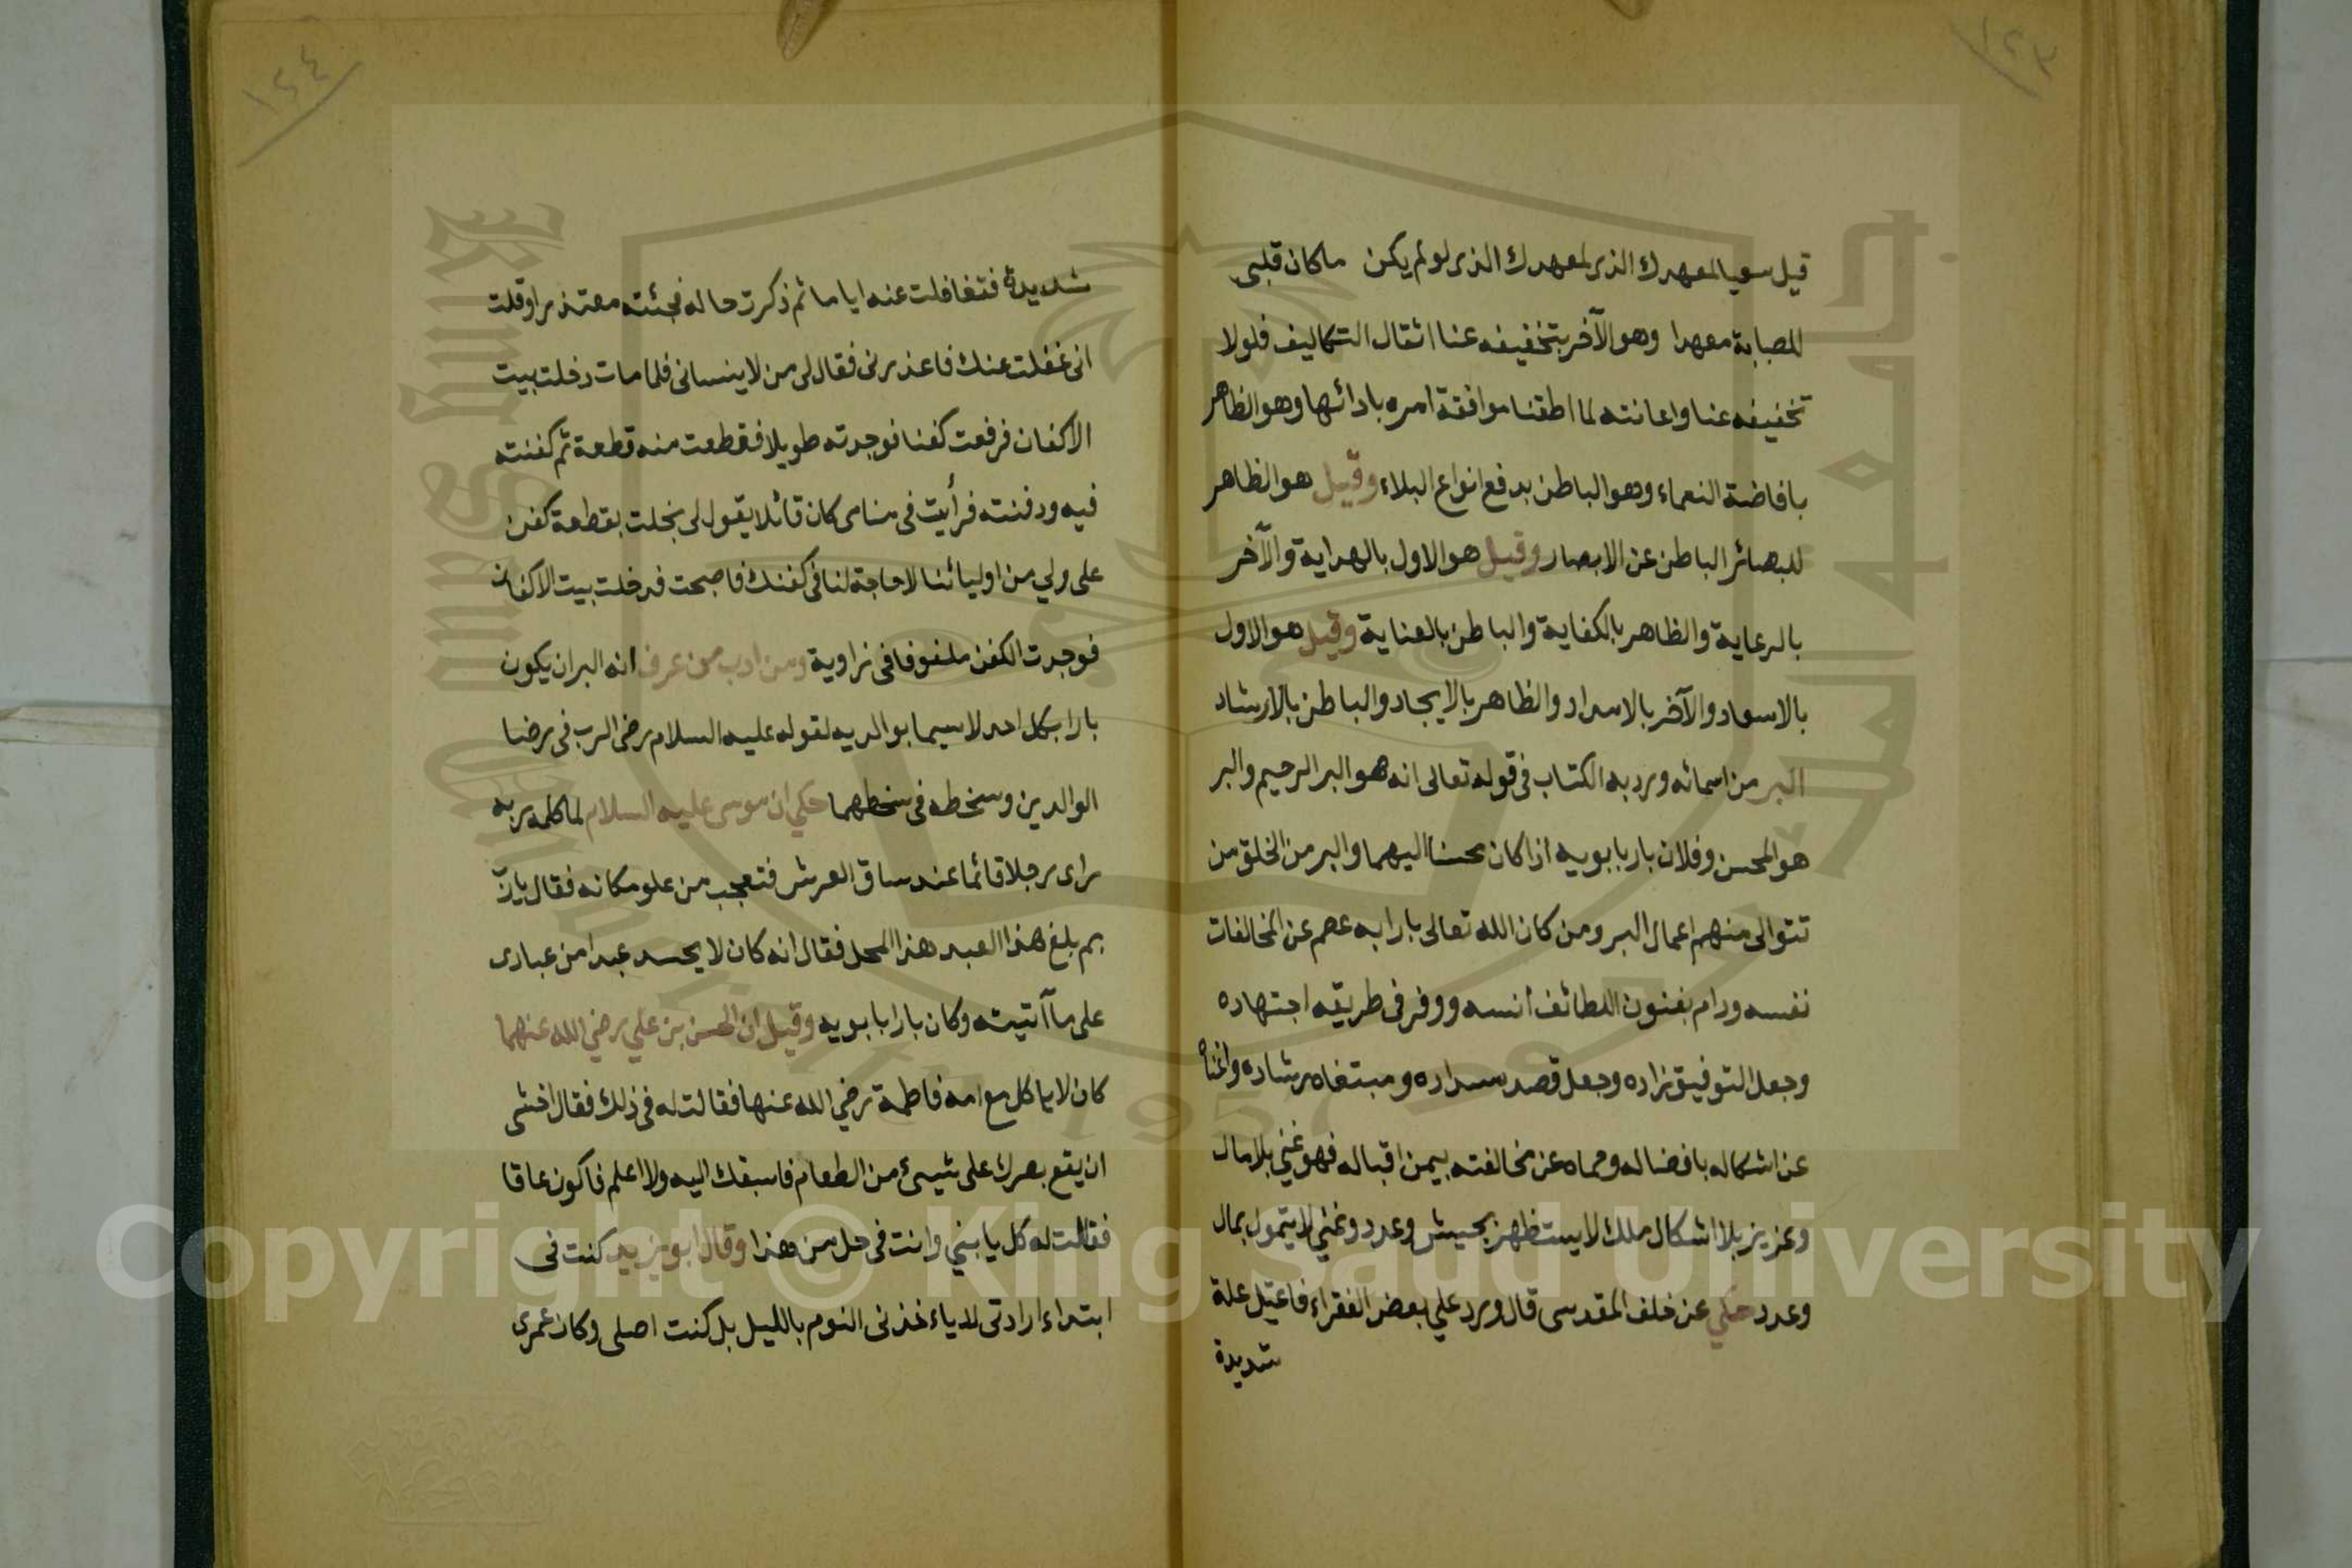 ١٢٣
قيل سعيا لمعهدك الذي لمعهدك الذي لو لم يكن ما كان قلبي
للصبابة معهدا وهو الآخر بتخفيفه عنا اثقال التكاليف فلولا
تخفيفه عنا واعانته لما اطقنا موافقة امره بادائها وهو الظاهر
بافاضة النعماء وهو الباطن بدفع انواع البلاء وقيل هو الظاهر
للبصائر الباطن عن الابصار وقيل هو الاول بالهداية والآخر
بالرعاية والظاهر بالكفاية والباطن بالعناية وقيل هو الاول
بالاسعاد والآخر بالامداد والظاهر بالايجاد والباطن بالارشاد
البر من اسمائه ورد به الكتاب في قوله تعالى انه هو البر الرحيم والبر
هو المحسن وفلان بار بابويه اذا كان محسنا اليهما والبر من الخلق من
تتوالى منهم اعمال البر ومن كان الله تعالى بارا به عصم عن المخالفات
نفسه ودام بفنون اللطائف انسه ووفر في طريقه اجتهاده
وجعل التوفيق زاده وجعل قصد سداده ومبتغاه رشاده واغناه
عن اشكاله بافضاله وحماه عن مخالفته بيمن اقباله فهو غني بلا مال
وعزيز بلا اشكال ملك لا يستظهر بجيش وعدد وغني لا يتمول بمال
وعدد حكي عن خلف المقدسى قال ورد علي بعض الفقراء فاعتل علة
شديدة
١٢٤
شديدة فتغافلت عنه اياما ثم ذكرت حاله فجئته معتذرا وقلت
انى غفلت عنك فاعذرنى فقال لى من لا ينسانى فلما مات دخلت بيت
الاكفان فرفعت كفنا فوجدته طويلا فقطعت منه قطعة ثم كفنته
فيه ودفنته فرأيت فى منامى كان قائلا يقول لى بخلت بقطعة كفن
على ولي من اوليائنا لا حاجة لنا فى كفنك فاصبحت فدخلت بيت الاكفان
فوجدت الكفن ملفوفا فى زاوية ومن ادب من عرف انه البر ان يكون
بارا بكل احد لاسيما بوالديه لقوله عليه السلام رضى الرب فى رضا
الوالدين وسخطه فى سخطهما حكي ان موسى عليه السلام لما كلمه ربه
راى رجلا قائما عند ساق العرش فتعجب من علو مكانه فقال يا رب
بم بلغ هذا العبد هذا المحل فقال انه كان لا يحسد عبدا من عبادى
على ما آتيته وكان بارا بابويه وقيل ان الحسن بن علي رضي الله عنهما
كان لا ياكل مع امه فاطمة رضي الله عنها فقالت له فى ذلك فقال اخشى
ان يقع بصرك على شيئ من الطعام فاسبقك اليه ولا اعلم فاكون عاقا
فقالت له كل يا بني وانت فى حل من هذا وقال ابو يزيد كنت فى
ابتداء ارادتى لا ياءخذنى النوم بالليل بل كنت اصلى وكان عمرى
Copyright © King Saud University
1957